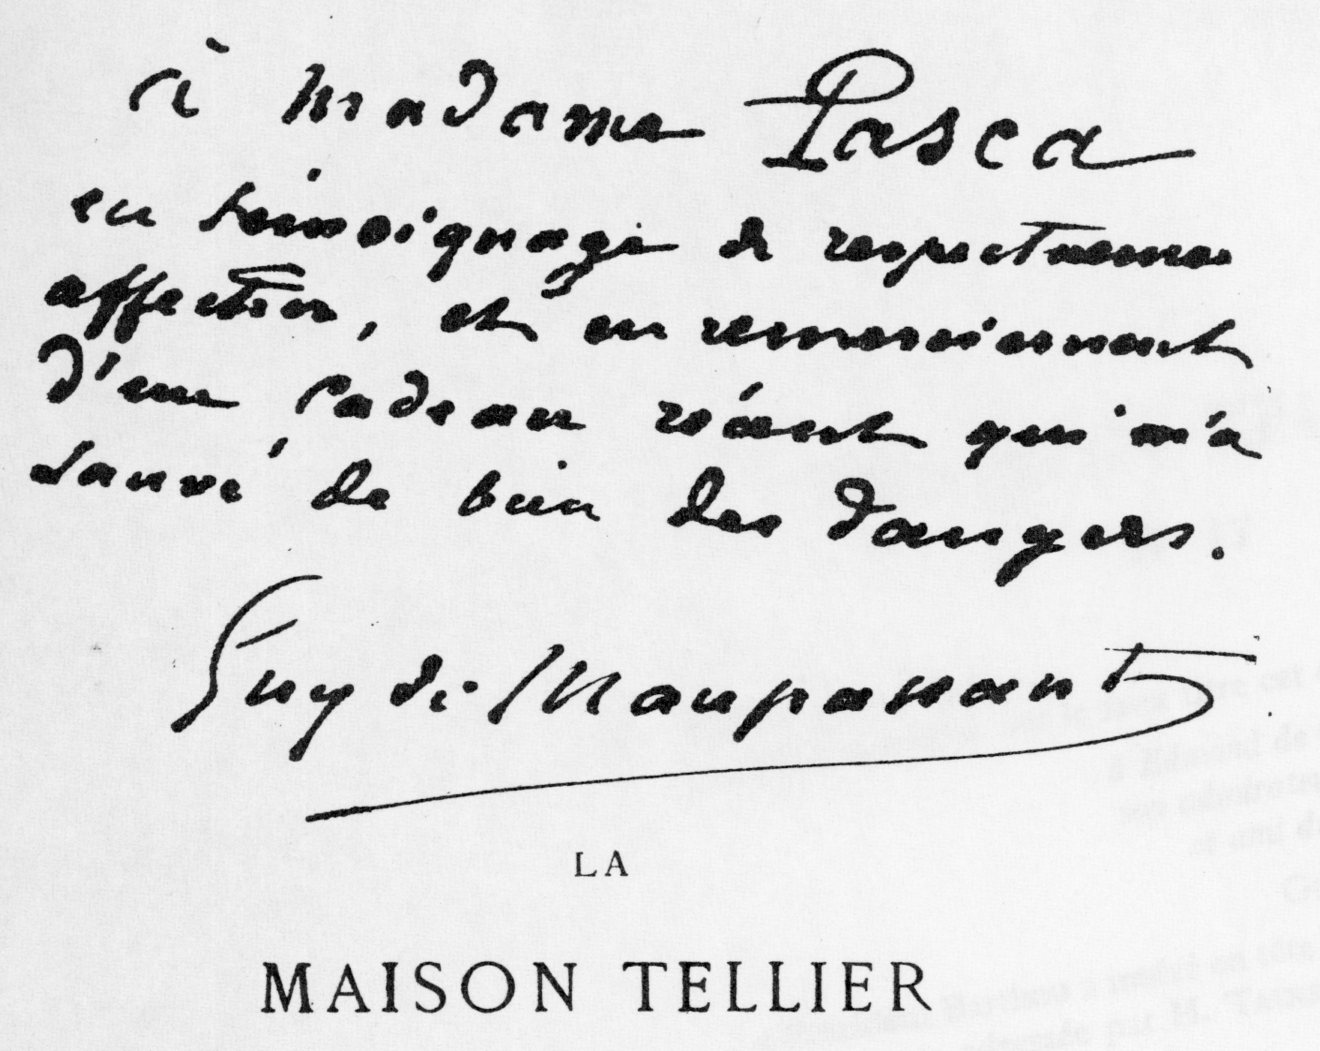 à Madame Pasca
en témoignage de respectueuse
affection, et en remerciement
d'un cadeau
qui m'a
sauvé de bien des dangers.
Guy de Maupassant
LA
MAISON TELLIER